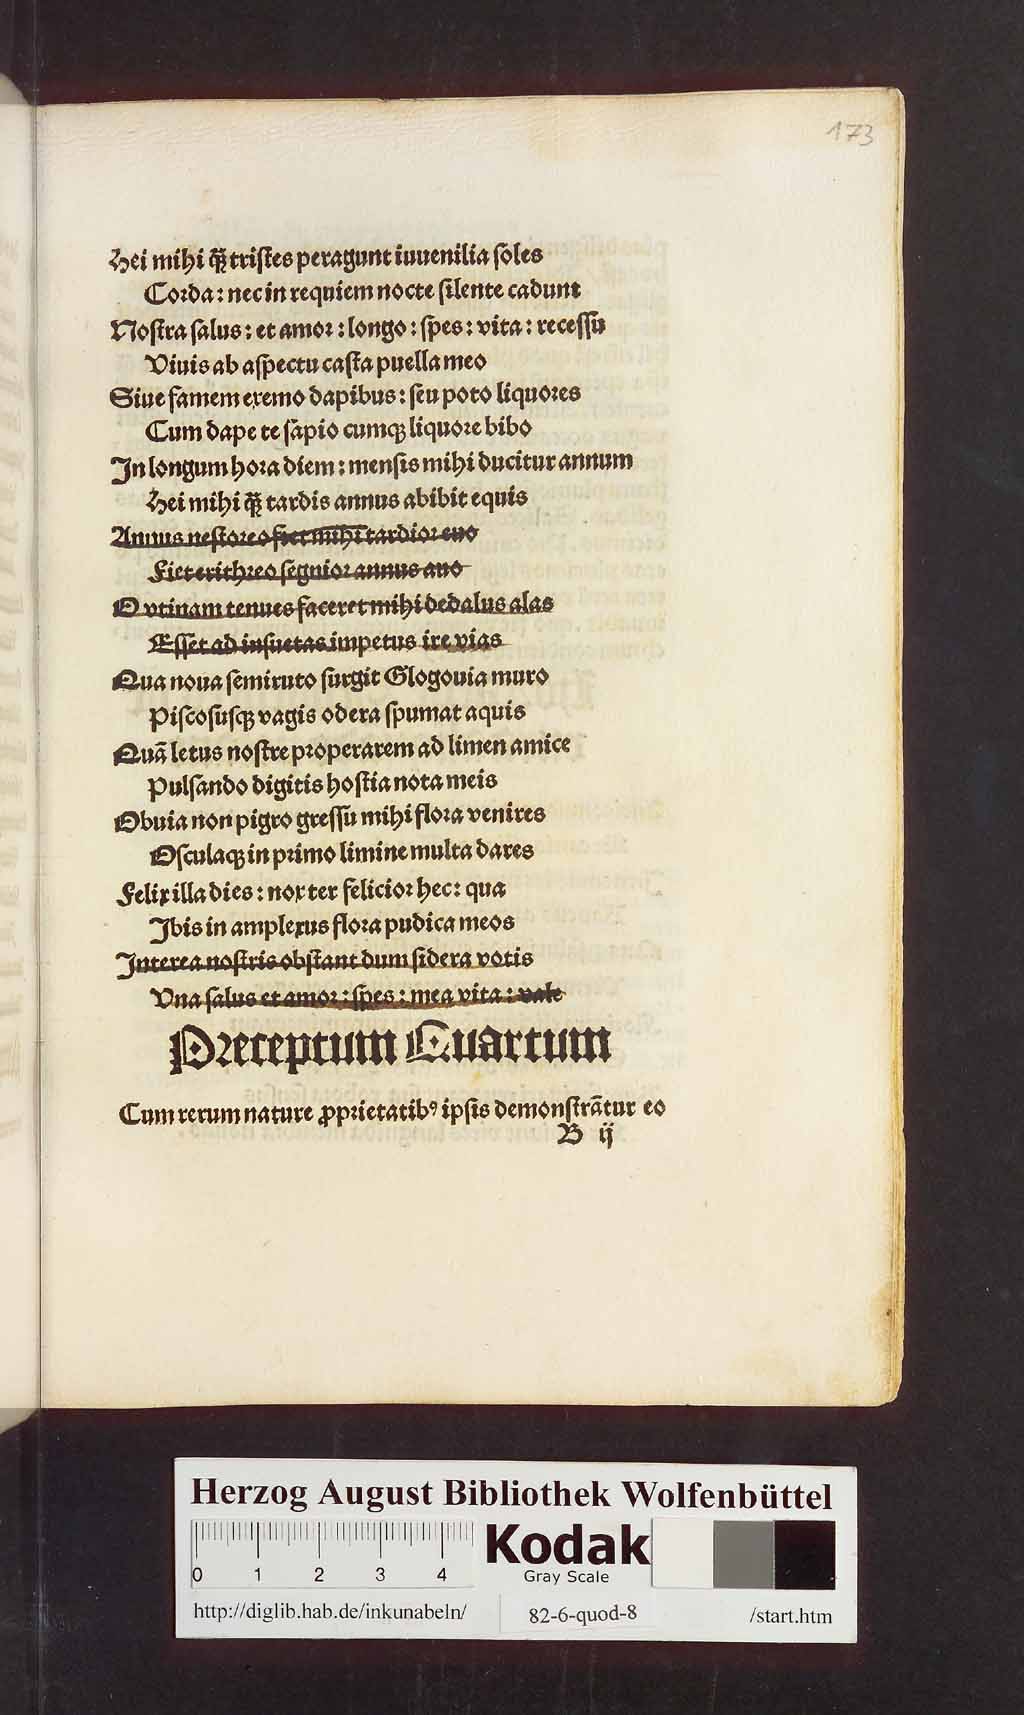 173
Hei mihi q̃ꝫ tristes peragunt iuuenilia soles
Corda: nec in requiem nocte silente cadunt
Nostra salus: et amor: longo: spes: vita: recessu
Viuis ab aspectu casta puella meo
Siue famem exemo dapibus: seu poto liquores
Cum dape te sapio cumqꝫ liquore bibo
In longum hora diem: mensis mihi ducitur annum
Hei mihi q̃ꝫ tardis annus abibit equis
Annus nestoreo fiet mihi tardior euo
Fiet erithreo segnior annus auo
O vtinam tenues faceret mihi dedalus alas
Esset ad insuetas impetus ire vias
Qua noua semiruto surgit Glogouia muro
Piscosusqꝫ vagis odera spumat aquis
Quã letus nostre properarem ad limen amice
Pulsando digitis hostia nota meis
Obuia non pigro gressu mihi flora venires
Osculaqꝫ in primo limine multa dares
Felix illa dies: nox ter felicior hec: qua
Ibis in amplexus flora pudica meos
Interea nostris obstant dum sidera votis
Vna salus et amor: spes: mea vita: vale
Preceptum Quartum
Cum rerum nature ꝓprietatibꝰ ipsis demonstrãtur eo
B ij
Herzog August Bibliothek Wolfenbüttel
0 1 2 3 4
Kodak
Gray Scale
http://diglib.hab.de/inkunabeln/ 82-6-quod-8 /start.htm